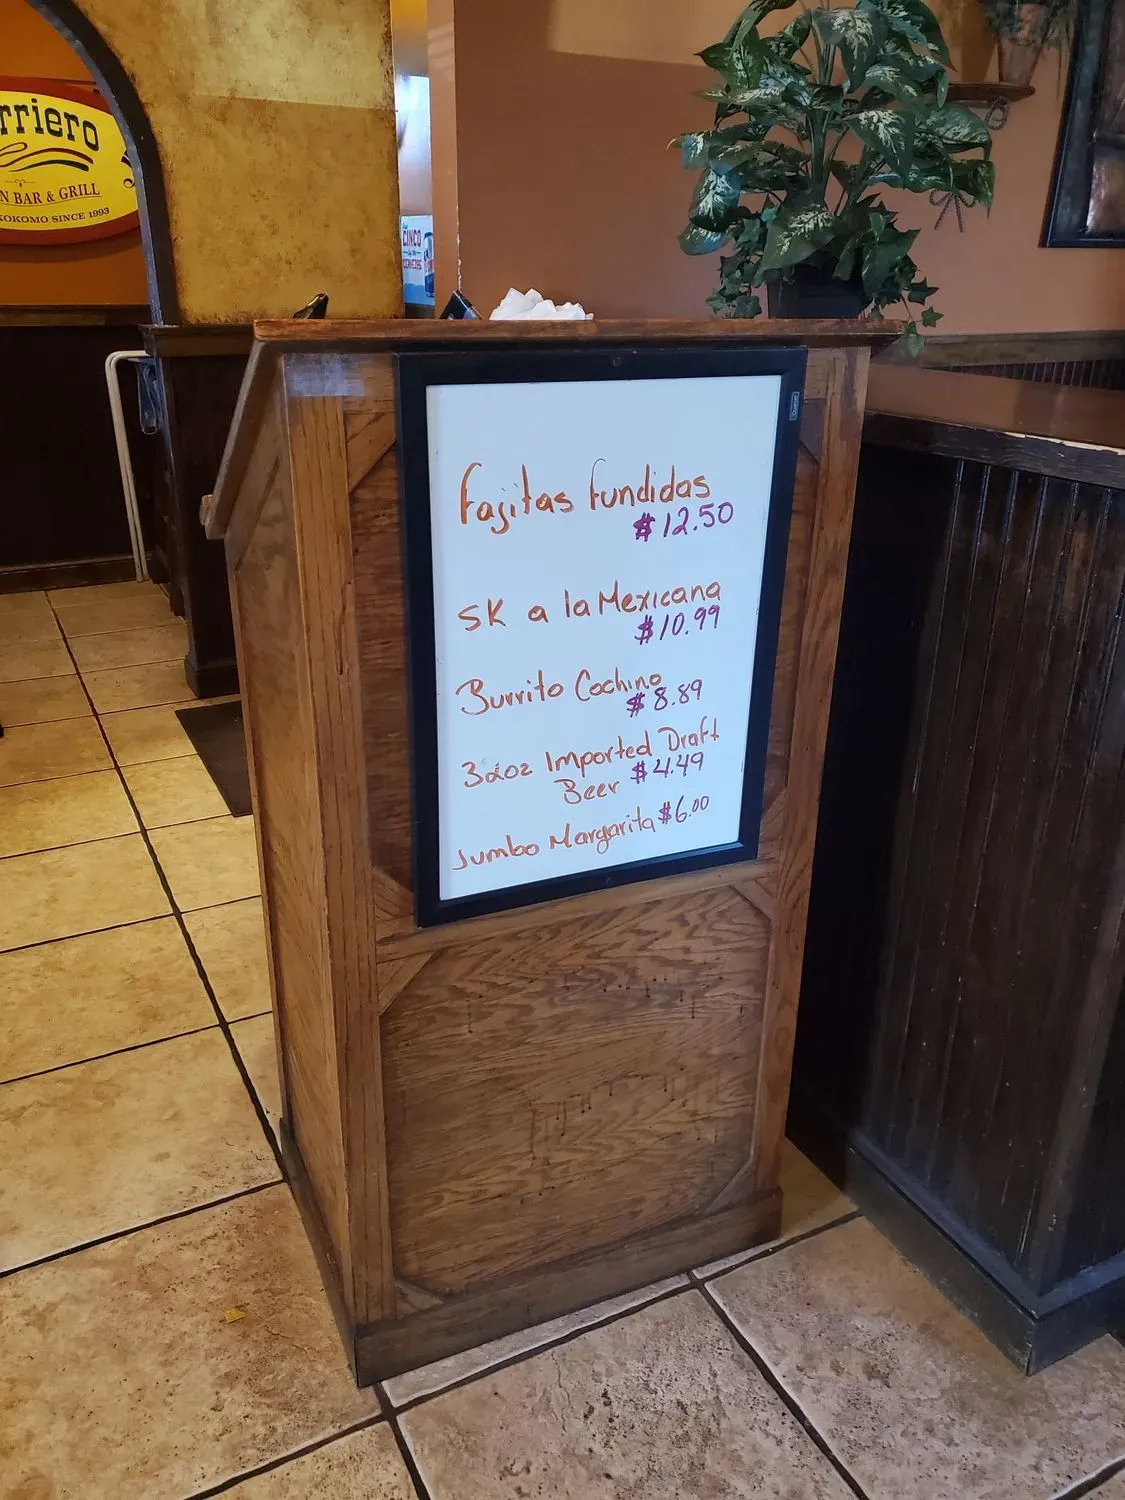 rriero
N BAR & GRILL
KOKOMO SINCE 1993
CINCO
Fajitas Fundidas
$12.50
SK a la Mexicana
$10.99
Burrito Cochino
$8.89
32oz Imported Draft
Beer $4.49
Jumbo Margarita $6.00